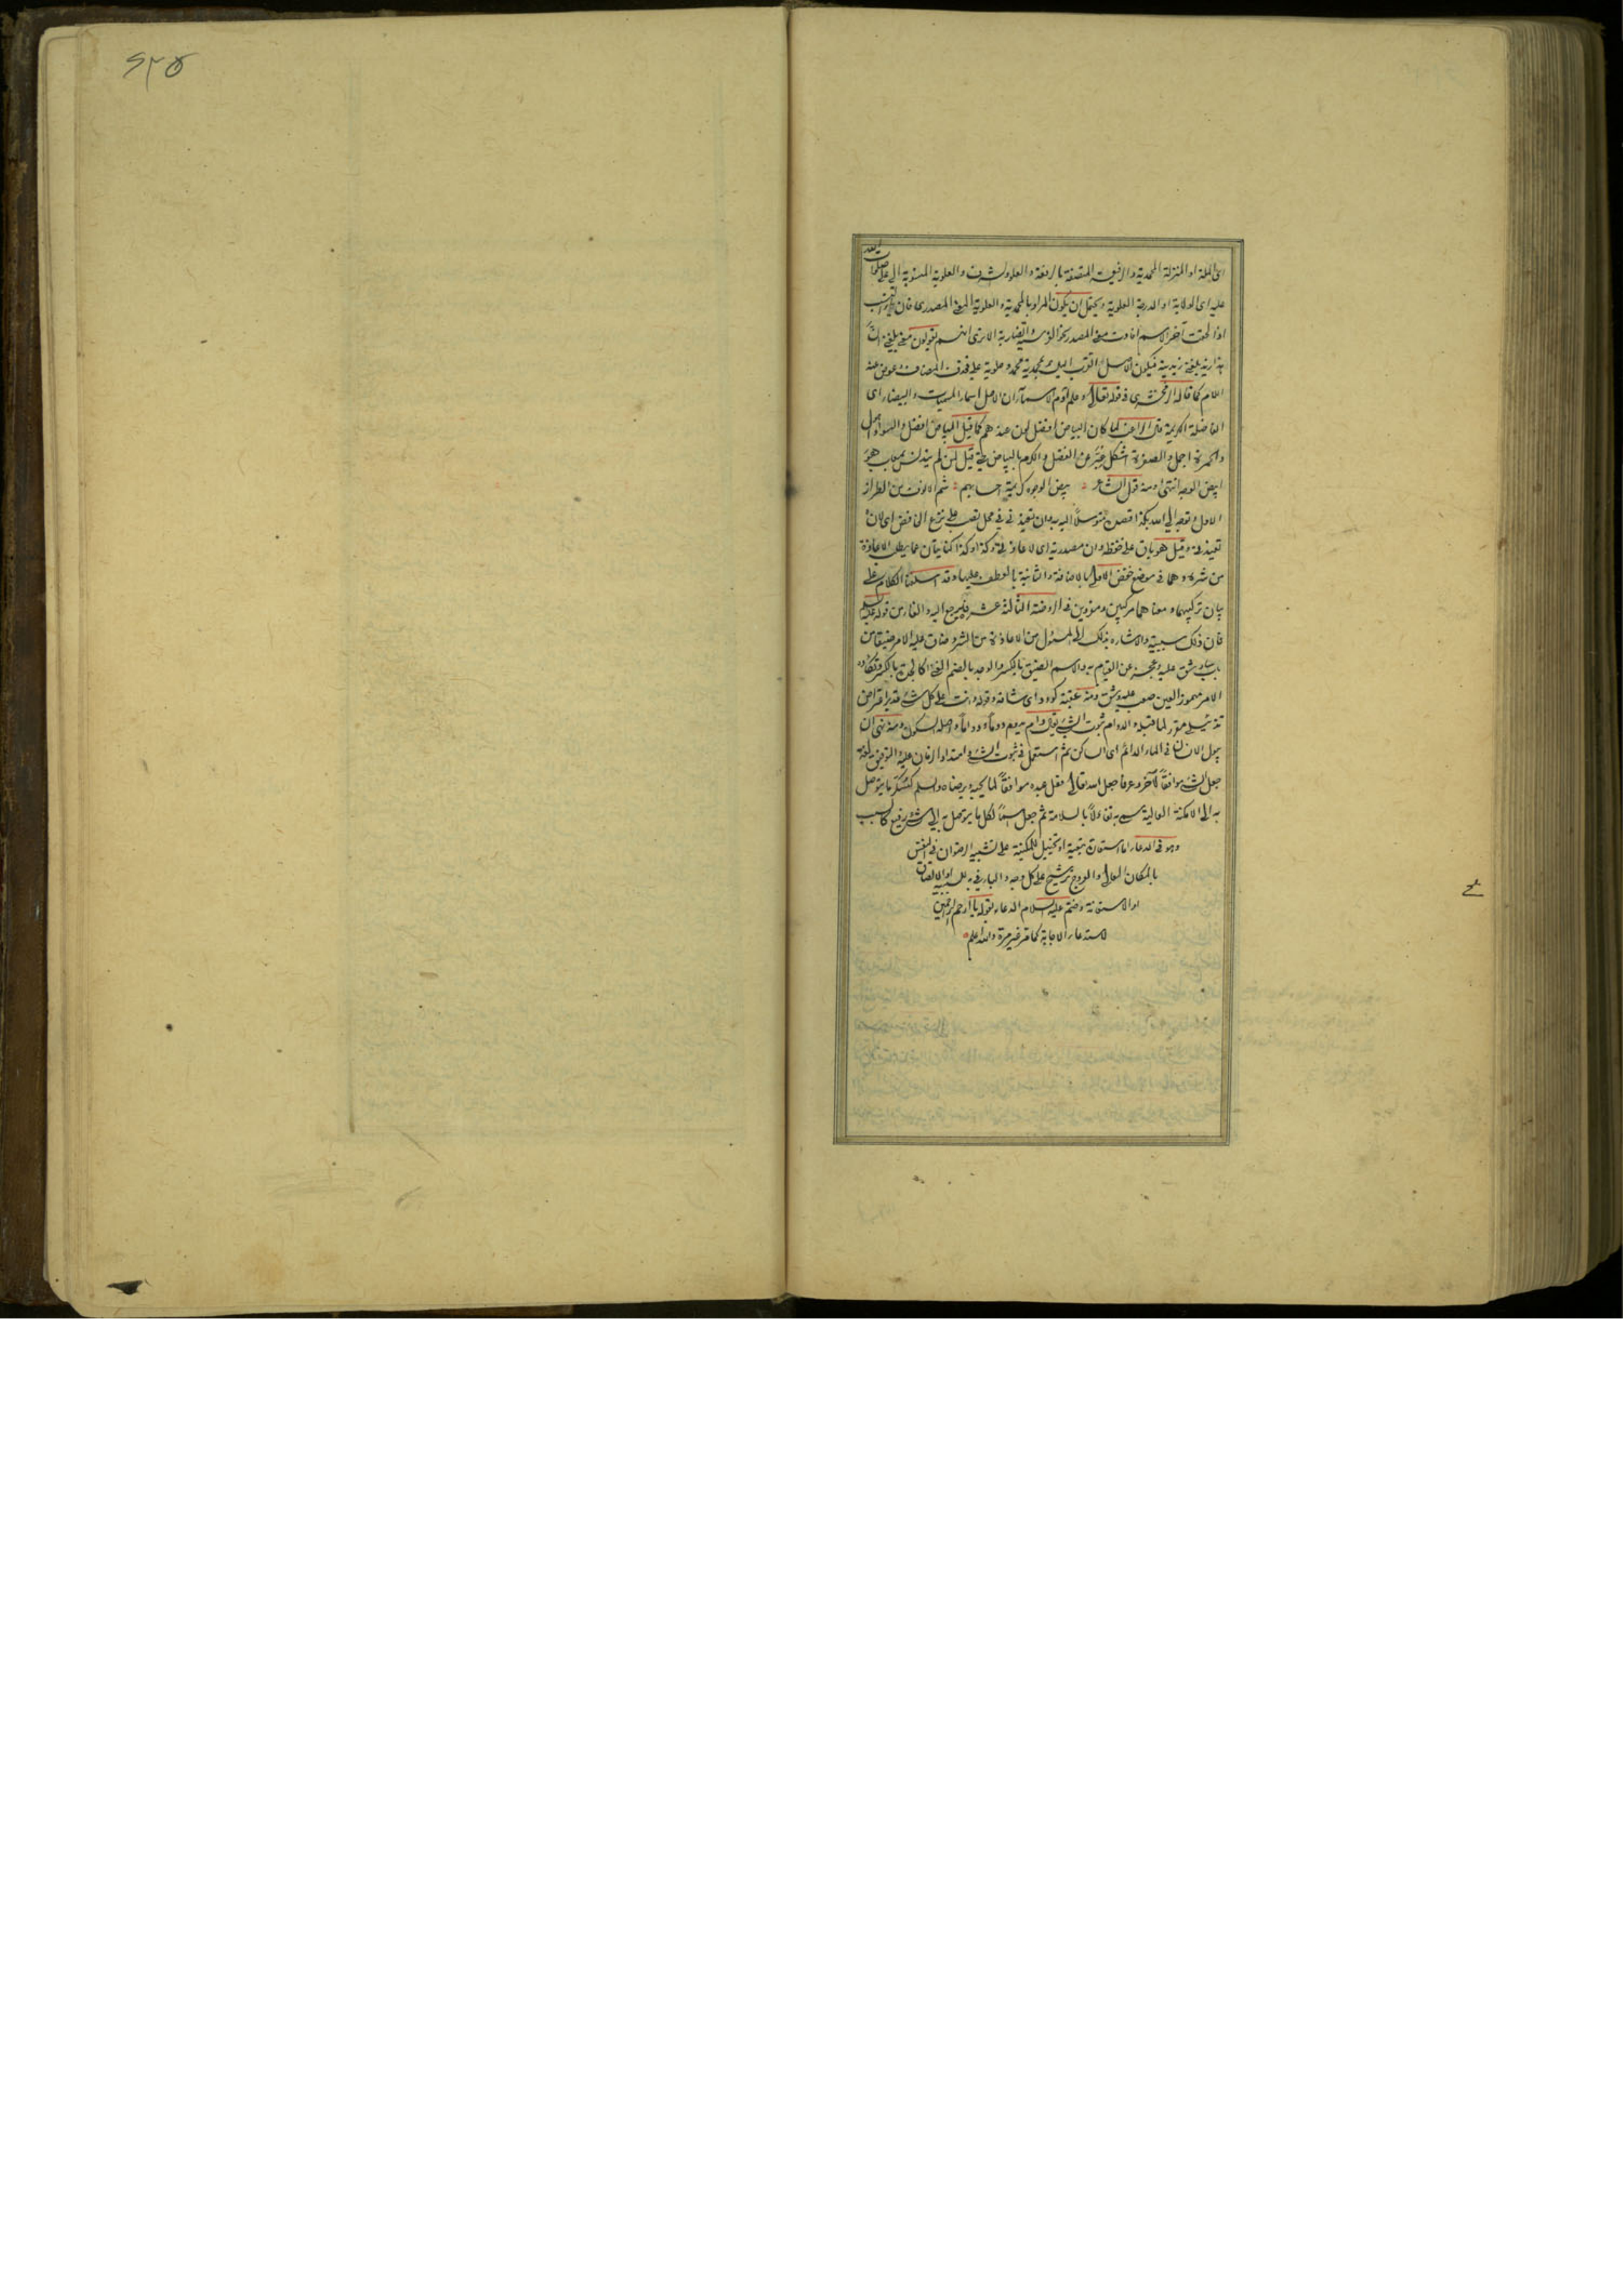 اى الملة او المنزلة المحمدية والرفيعة المتصفة بالرفعة والعلو والشرف والعلوية المنسوبة الى على صلوات الله
عليه اى الولاية او الدرجة العلوية ويحتمل ان يكون المراد بالمحمدية والعلوية المعنى المصدرى فان ياء النسب
اذا لحقت آخر الاسم افادت معنى المصدر نحو الضاربية الا ترى انهم يقولون
فيكون الاصل اتقرب اليك بمحمدية محمد وعلوية على فحذف المضاف وعوض عنه
اللام كما قاله الزمخشرى فى قوله تعالى وعلم آدم الاسماء ان الاصل اسماء المسميات والبيضاء اى
الفاضلة الكريمة قال الراغب لما كان البياض افضل لون عندهم كما قيل البياض افضل والسواد اهول
والحمرة اجمل والصفرة اشكل عبر عن الفضل والكرم بالبياض حتى قيل لمن لم يتدنس بمعاب هو
ابيض الوجه انتهى ومنه قول الشاعر بيض الوجوه كريمة احسابهم شم الانوف من الطراز
الاول وتوجه الى الله بكذا قصده متوسلا اليه به وان تعيذنى فى محل نصب على نزع الخافض اى لان
تعيذنى وقيل هو باق على خفضه وان مصدرية اى لاعاذتى وكذا وكذا كنايتان عما يطلب الاعاذة
من شره وهما فى موضع خفض الاولى بالاضافة والثانية بالعطف عليها وقد اسلفنا الكلام على
بيان تركيبهما ومعناهما مركبين ومفردين فى الروضة الثالثة عشر فليرجع اليه والفاء من قوله عليه السلام
فان ذلك سببية والاشارة بذلك الى المسئول من الاعاذة من الشر وضاق عليه الامر ضيقا من
باب سار شق عليه وعجز عن القيام به والاسم الضيق بالكسر والوجد بالضم الغنى كالجدة بالكسر وتكأده
الامر مهموز العين صعب عليه وشق ومنه عقبة كؤود اى شاقة وقوله وانت على كل شىء قدير اعتراض
تذييلى مقرر لما قبله والدوام ثبوت الشىء يقال دام يدوم دوما ودواما واصله السكون ومنه نهى ان
يبول الانسان فى الماء الدائم اى الساكن ثم استعمل فى ثبوت الشىء وامتداد الزمان عليه والتوفيق لغة
جعل الشىء موافقا لآخر وعرفا جعل الله تعالى فعل عبده موافقا لما يحبه ويرضاه والسلم كسكر ما يتوصل
به الى الامكنة العالية سمى به تفاؤلا بالسلامة ثم جعل اسما لكل ما يتوصل به الى شىء رفيع كالسبب
وهو فى الدعاء اما استعارة تبعية او تخييل للمكنية على تشبيه الرضوان فى النفس
بالمكان العالى والعروج ترشيح على كل وجه والباء فى به للسببية او الالصاق
او الاستعانة وختم عليه السلام الدعاء بقوله يا ارحم الراحمين
لاستدعاء الاجابة كما مر غير مرة والله اعلم